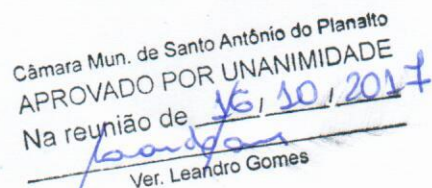 Câmara Mun. de Santo Antônio do Planalto
APROVADO POR UNANIMIDADE
Na reunião de 16, 10, 2017
Ver. Leandro Gomes